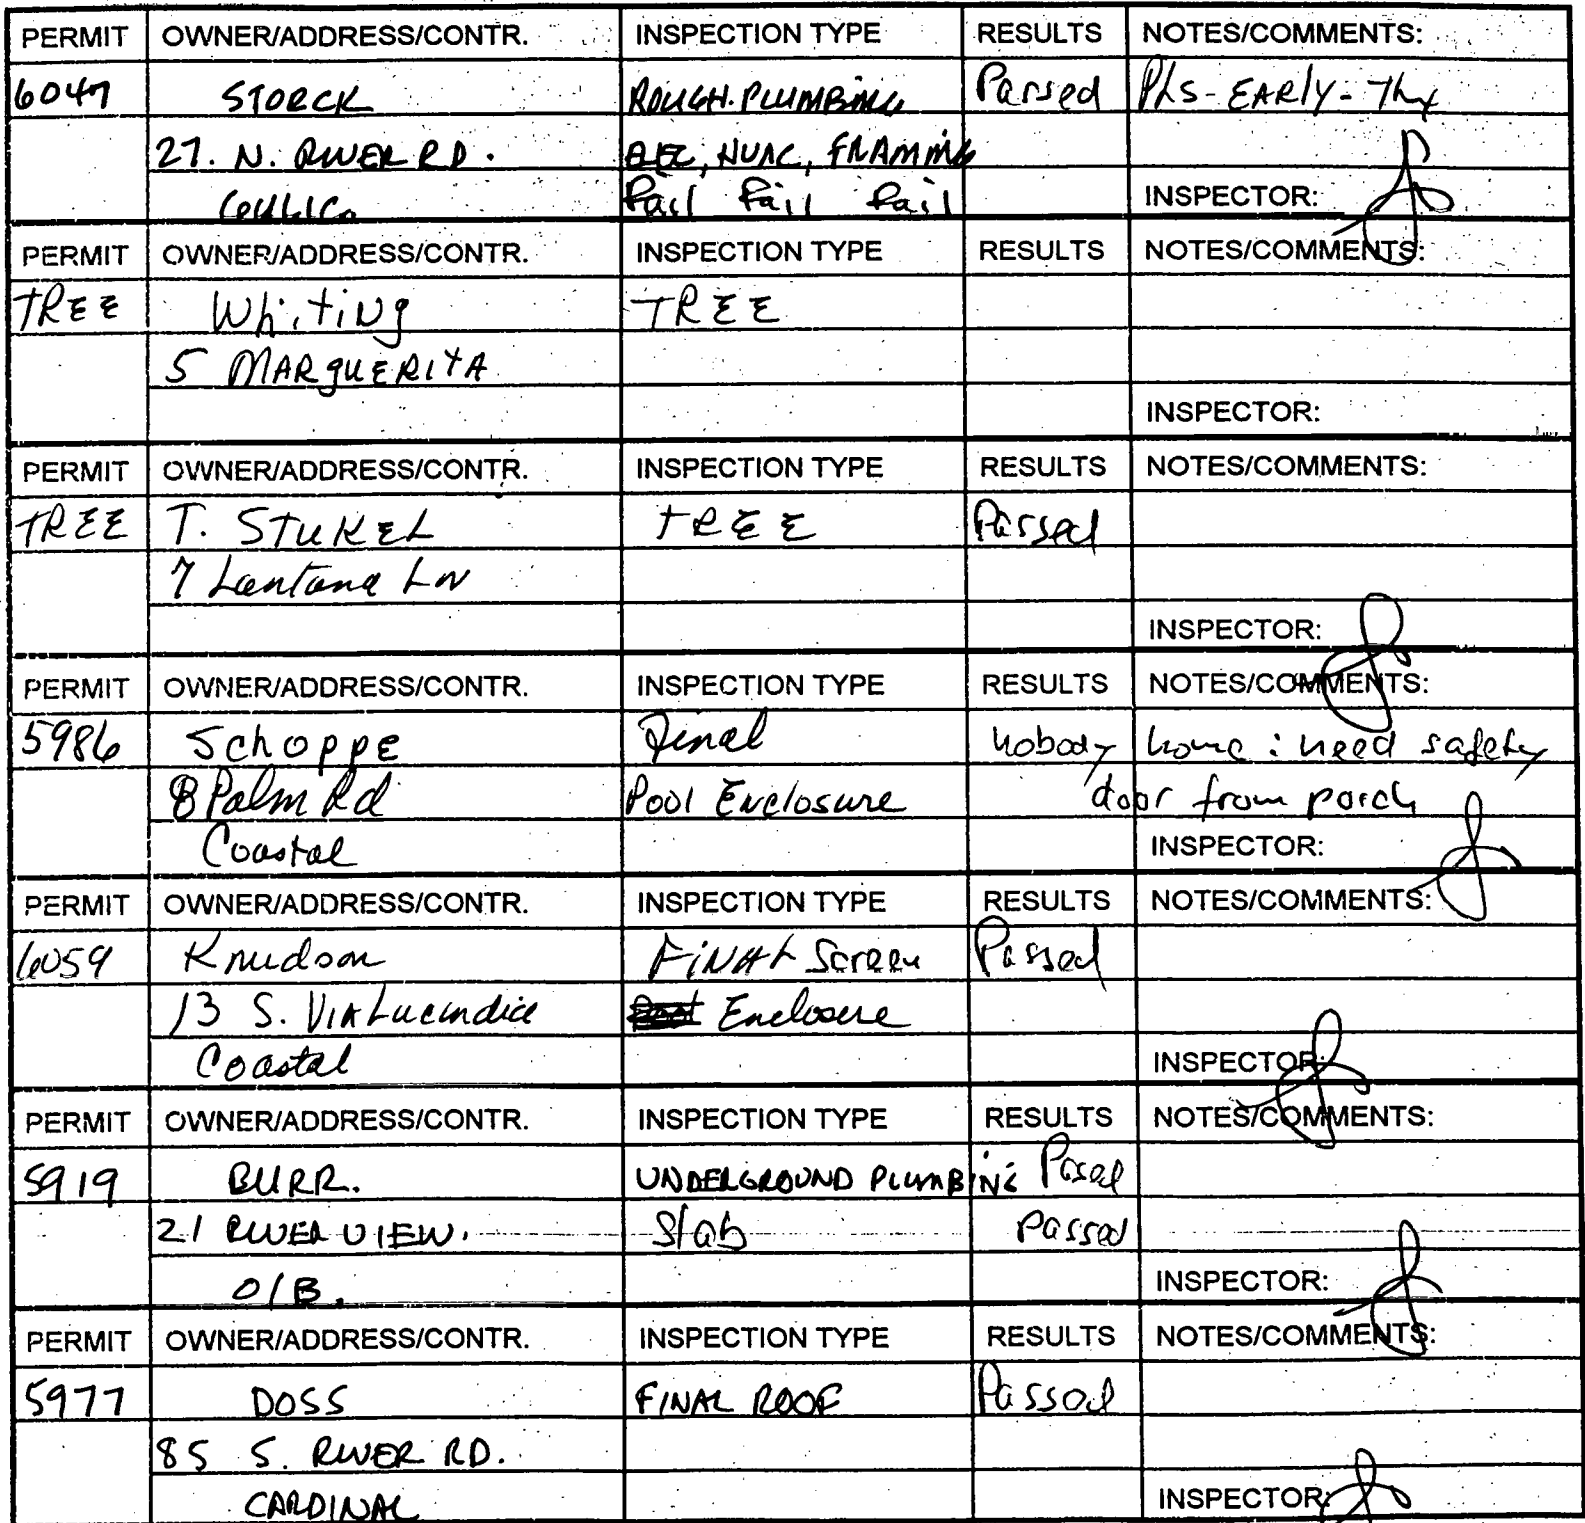 PERMIT OWNER/ADDRESS/CONTR. INSPECTION TYPE RESULTS NOTES/COMMENTS:
6047 STORCK ROUGH. PLUMBING Passed Pls - EARly - Thx
27. N. RIVER RD. ELEC, HVAC, FRAMING
Fail Fail Fail INSPECTOR:
PERMIT OWNER/ADDRESS/CONTR. INSPECTION TYPE RESULTS NOTES/COMMENTS:
TREE WhitiNg TREE
5 MARguERITA
INSPECTOR:
PERMIT OWNER/ADDRESS/CONTR. INSPECTION TYPE RESULTS NOTES/COMMENTS:
TREE T. STUKEL TREE Passed
7 Lantana LN
INSPECTOR:
PERMIT OWNER/ADDRESS/CONTR. INSPECTION TYPE RESULTS NOTES/COMMENTS:
5986 SchoppE Final nobody home : need safety
8 Palm Rd Pool Enclosure door from porch
Coastal INSPECTOR:
PERMIT OWNER/ADDRESS/CONTR. INSPECTION TYPE RESULTS NOTES/COMMENTS:
6059 Knudson FiNAL Screen Passed
13 S. VIA Lucindia Enclosure
Coastal INSPECTOR:
PERMIT OWNER/ADDRESS/CONTR. INSPECTION TYPE RESULTS NOTES/COMMENTS:
5919 BURR. UNDERGROUND PLUMBING Passed
21 RIVER VIEW. Slab Passed
O/B. INSPECTOR:
PERMIT OWNER/ADDRESS/CONTR. INSPECTION TYPE RESULTS NOTES/COMMENTS:
5977 DOSS FINAL ROOF Passed
85 S. RIVER RD.
CARDINAL INSPECTOR: